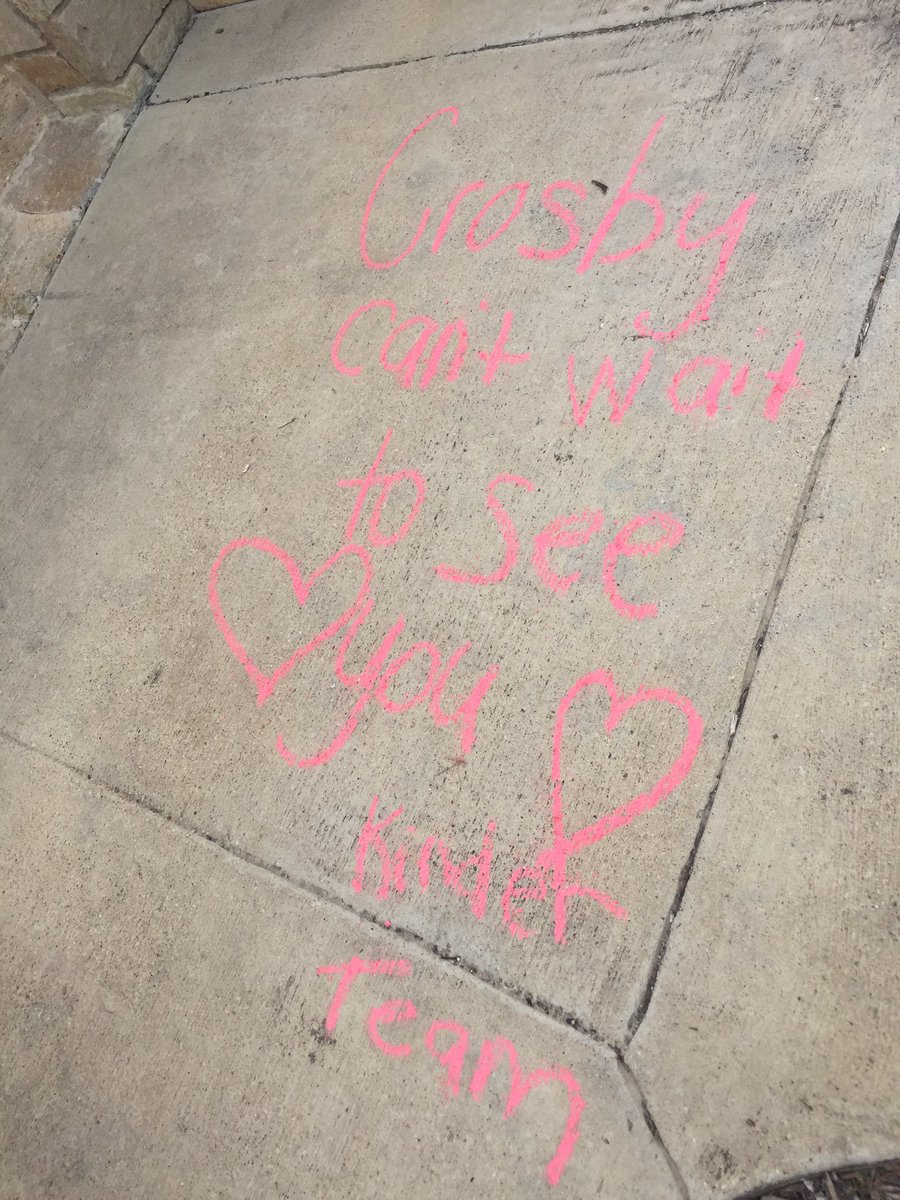 Crosby
can't wait
to see
you
Kinder
Team